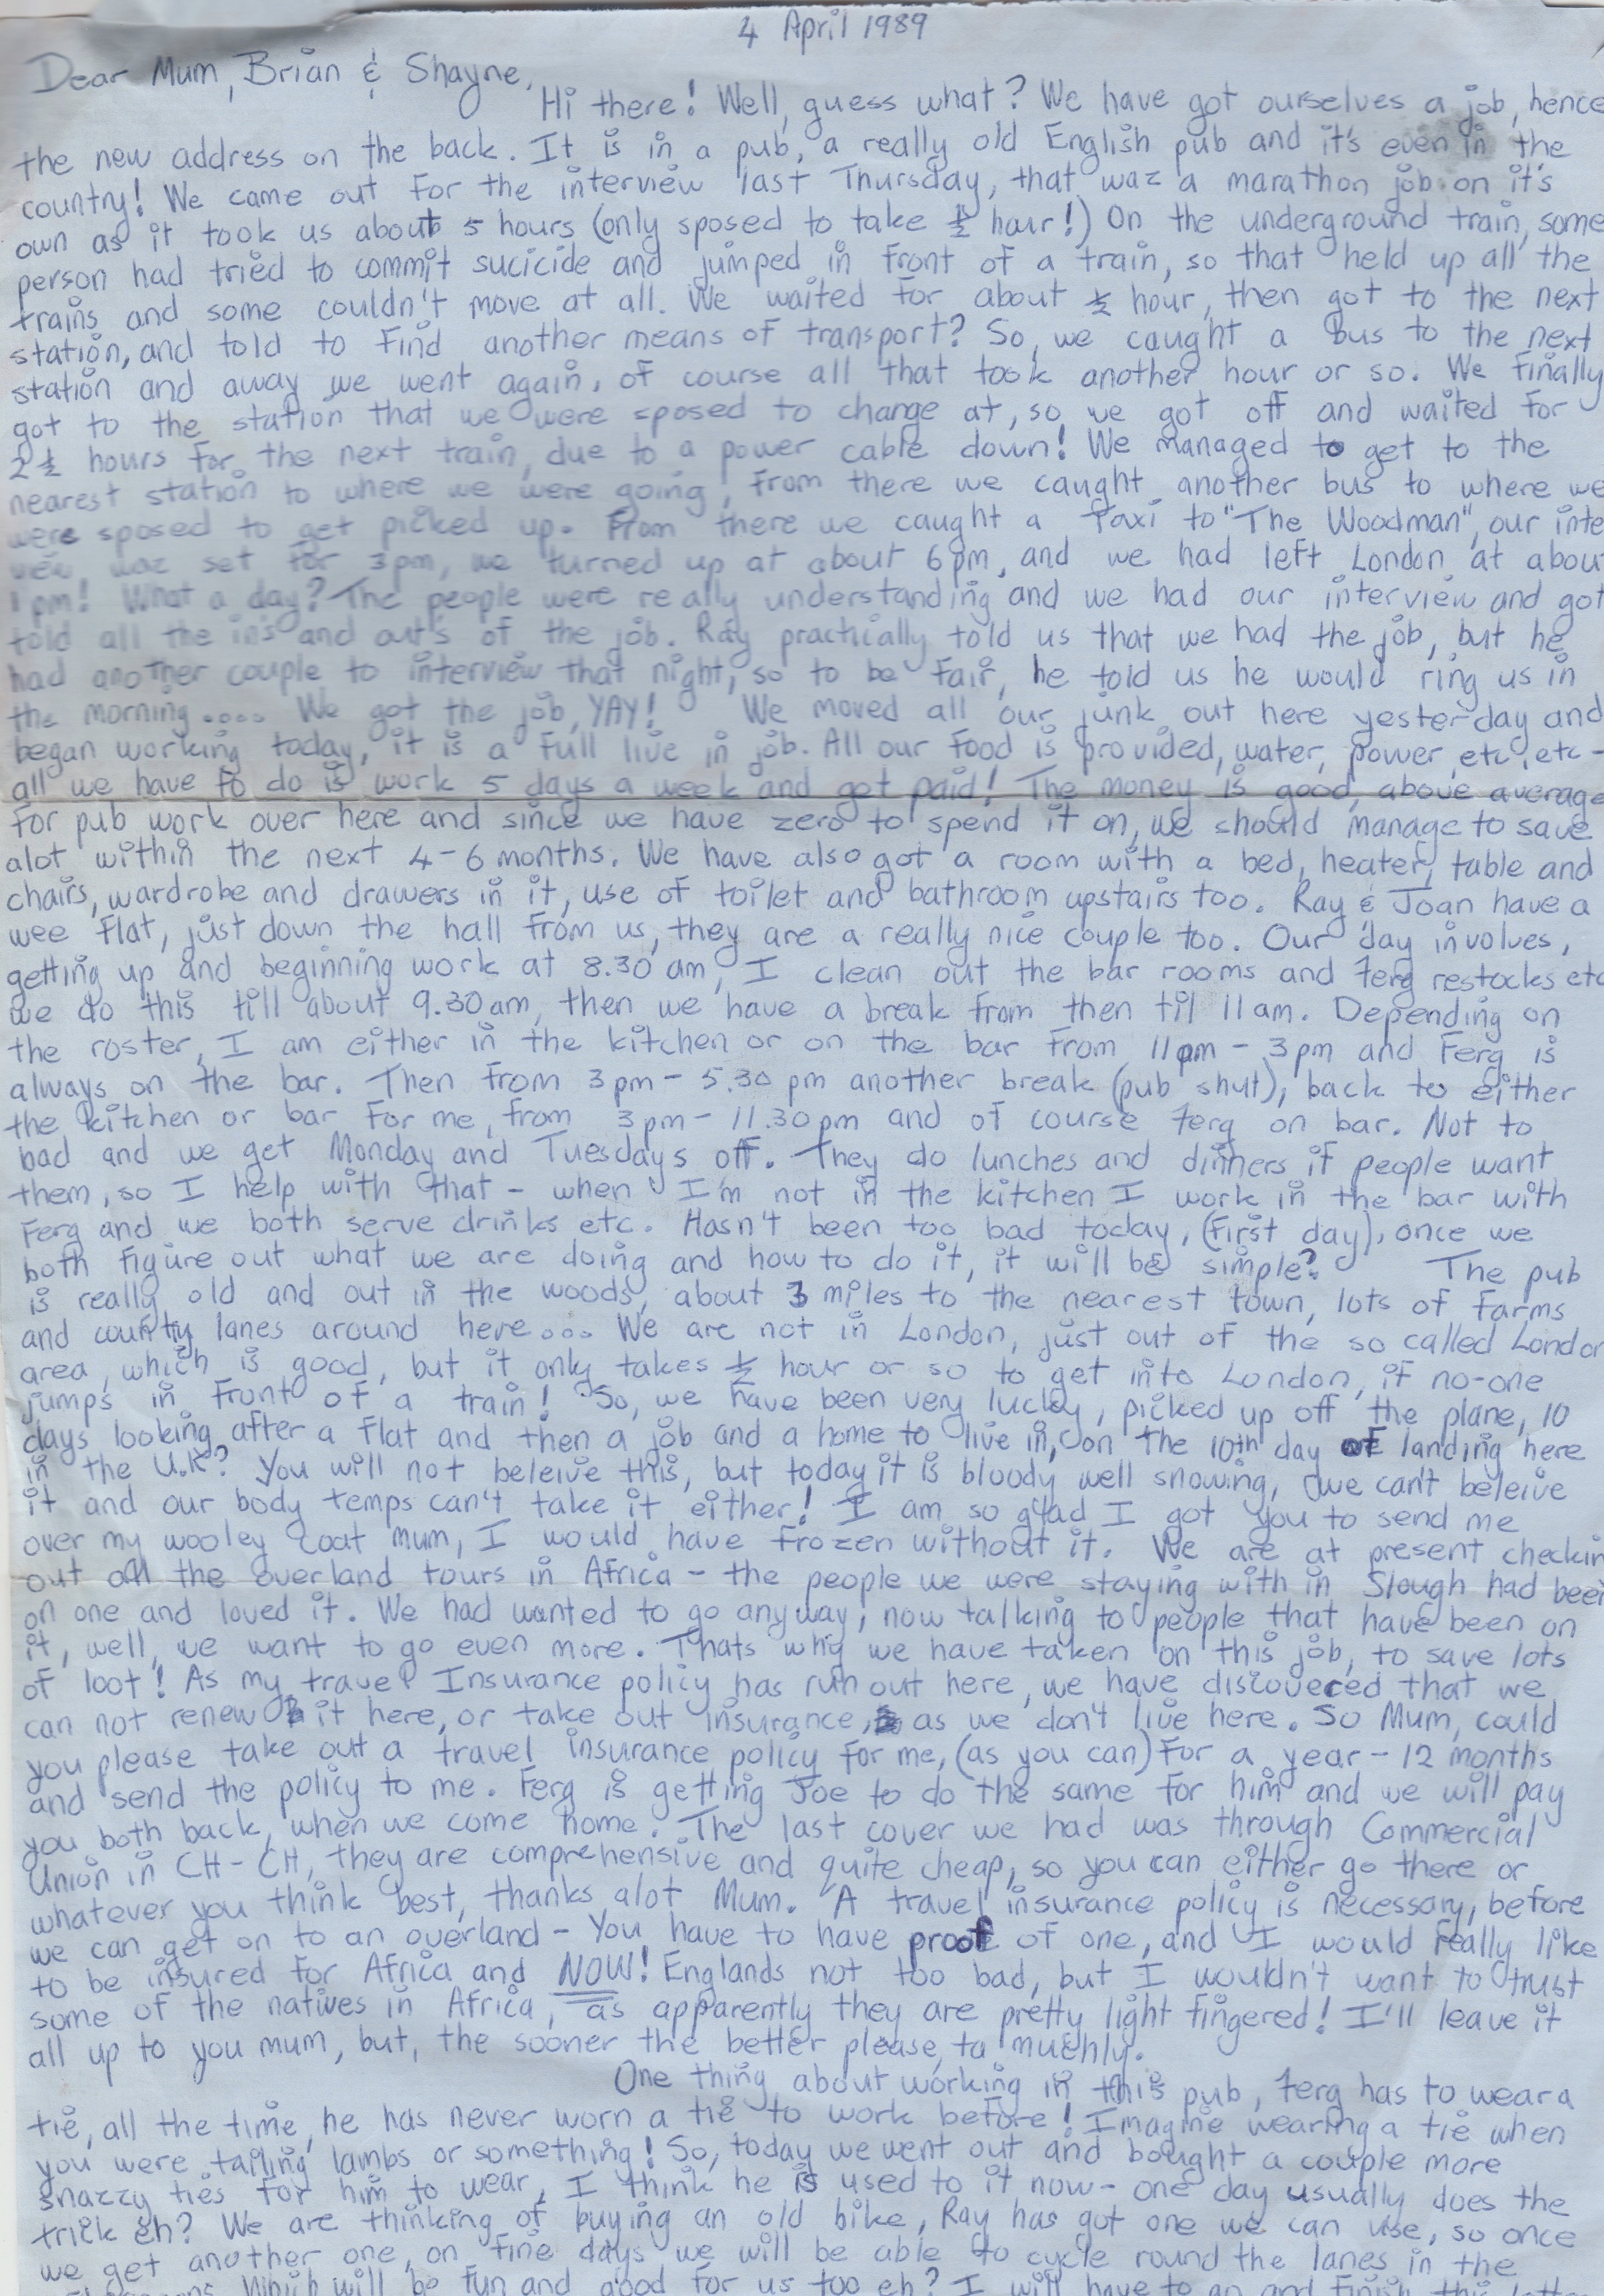 4 April 1989
Dear Mum, Brian & Shayne,
Hi there! Well, guess what? We have got ourselves a job, hence
the new address on the back. It is in a pub, a really old English pub and it's even in the
country! We came out for the interview last Thursday, that waz a marathon job on it's
own as it took us about 5 hours (only sposed to take ½ hour!) On the underground train, some
person had tried to commit sucicide and jumped in front of a train, so that held up all the
trains and some couldn't move at all. We waited for about ½ hour, then got to the next
station, and told to find another means of transport? So, we caught a bus to the next
station and away we went again, of course all that took another hour or so. We finally
got to the station that we were sposed to change at, so we got off and waited for
2½ hours for the next train, due to a power cable down! We managed to get to the
nearest station to where we were going, from there we caught another bus to where we
were sposed to get picked up. From there we caught a taxi to "The Woodman", our inte
view waz set for 3pm, we turned up at about 6pm, and we had left London at about
1pm! What a day? The people were really understanding and we had our interview and got
told all the in's and out's of the job. Ray practically told us that we had the job, but he
had another couple to interview that night, so to be fair, he told us he would ring us in
the morning.... We got the job, YAY! We moved all our junk out here yesterday and
began working today, it is a full live in job. All our food is provided, water, power, etc, etc -
all we have to do is work 5 days a week and get paid! The money is good, above average
for pub work over here and since we have zero to spend it on, we should manage to save
alot within the next 4-6 months. We have also got a room with a bed, heater, table and
chairs, wardrobe and drawers in it, use of toilet and bathroom upstairs too. Ray & Joan have a
wee flat, just down the hall from us, they are a really nice couple too. Our day involves,
getting up and beginning work at 8.30 am, I clean out the bar rooms and Ferg restocks etc
we do this till about 9.30am, then we have a break from then til 11am. Depending on
the roster, I am either in the kitchen or on the bar from 11pm - 3pm and Ferg is
always on the bar. Then from 3pm - 5.30 pm another break (pub shut), back to either
the kitchen or bar for me, from 3pm - 11.30pm and of course Ferg on bar. Not to
bad and we get Monday and Tuesdays off. They do lunches and dinners if people want
them, so I help with that - when I'm not in the kitchen I work in the bar with
Ferg and we both serve drinks etc. Hasn't been too bad today, (first day), once we
both figure out what we are doing and how to do it, it will be simple? The pub
is really old and out in the woods, about 3 miles to the nearest town, lots of farms
and country lanes around here... We are not in London, just out of the so called London
area, which is good, but it only takes ½ hour or so to get into London, if no-one
jumps in front of a train! So, we have been very lucky, picked up off the plane, 10
days looking after a flat and then a job and a home to live in, on the 10th day of landing here
in the U.K? You will not beleive this, but today it is bloody well snowing, we can't beleive
it and our body temps can't take it either! I am so glad I got you to send me
over my wooley coat Mum, I would have frozen without it. We are at present checkin
out all the overland tours in Africa - the people we were staying with in Slough had been
on one and loved it. We had wanted to go anyway, now talking to people that have been on
it, well, we want to go even more. Thats why we have taken on this job, to save lots
of loot! As my travel Insurance policy has run out here, we have discovered that we
can not renew it here, or take out insurance, as we don't live here. So Mum, could
you please take out a travel insurance policy for me, (as you can) for a year - 12 months
and send the policy to me. Ferg is getting Joe to do the same for him and we will pay
you both back, when we come home. The last cover we had was through Commercial
Union in CH-CH, they are comprehensive and quite cheap, so you can either go there or
whatever you think best, thanks alot Mum. A travel insurance policy is necessary, before
we can get on to an overland - You have to have proof of one, and I would really like
to be insured for Africa and NOW! Englands not too bad, but I wouldn't want to trust
some of the natives in Africa, as apparently they are pretty light fingered! I'll leave it
all up to you mum, but, the sooner the better please, ta muchly.
One thing about working in this pub, Ferg has to wear a
tie, all the time, he has never worn a tie to work before! Imagine wearing a tie when
you were tailing lambs or something! So, today we went out and bought a couple more
snazzy ties for him to wear, I think he is used to it now - one day usually does the
trick eh? We are thinking of buying an old bike, Ray has got one we can use, so once
we get another one, on fine days we will be able to cycle round the lanes in the
which will be fun and good for us too eh? I will have to go and finish this